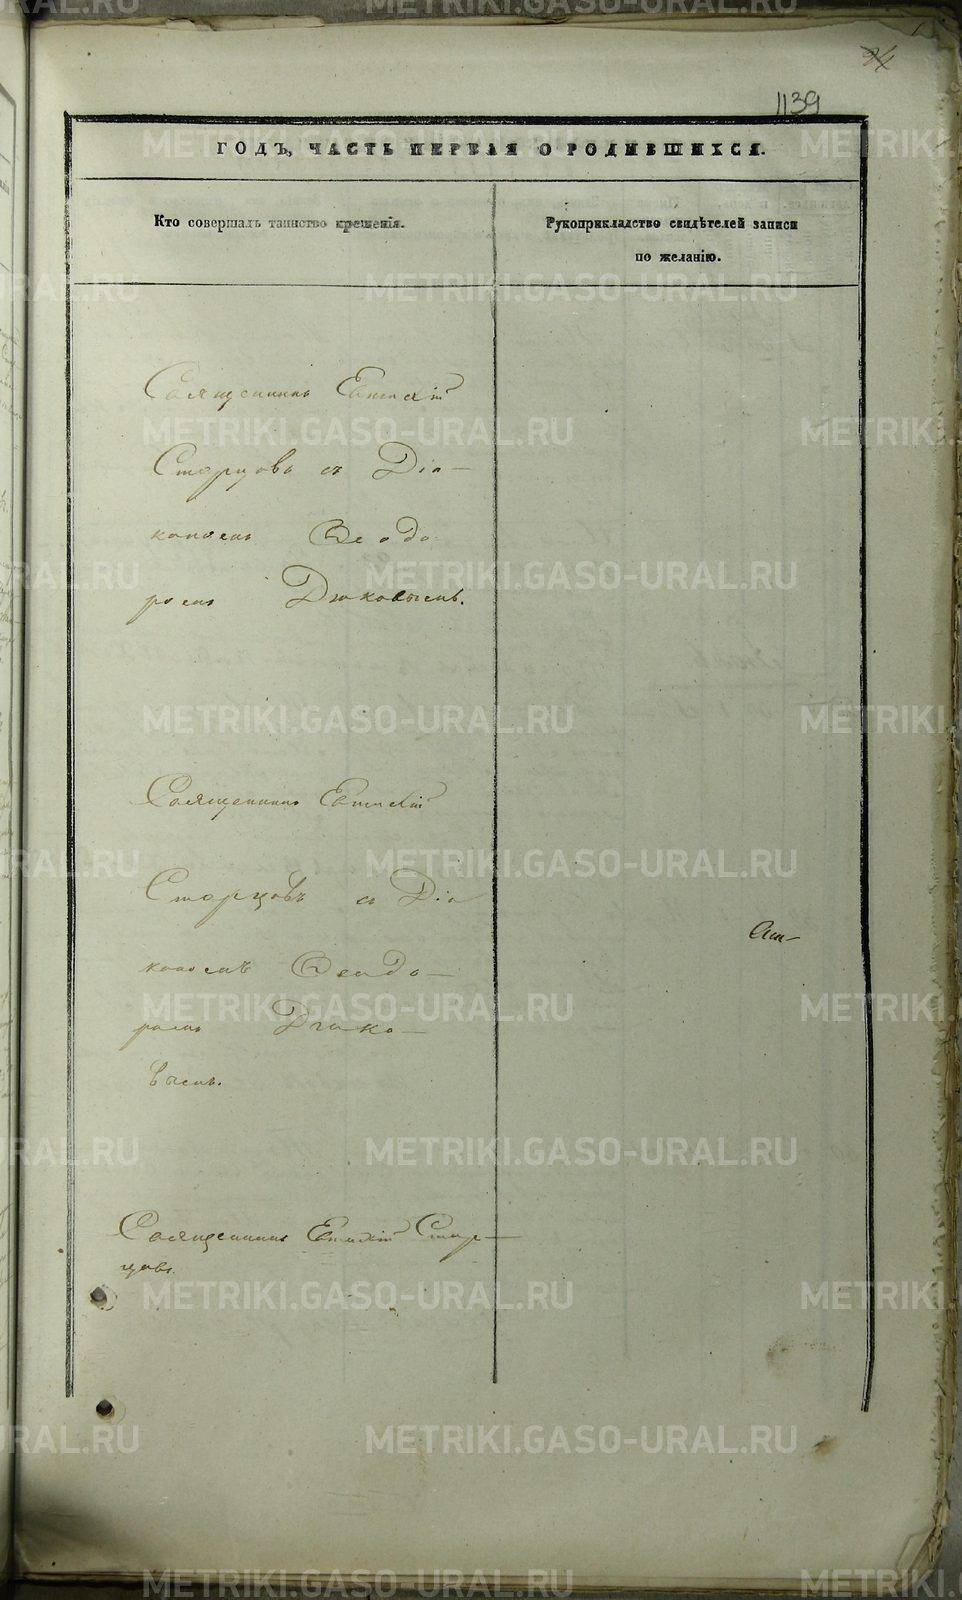 1139
ГОДЪ, ЧАСТЬ ПЕРВАЯ О РОДИВШИХСЯ.
Кто совершалъ таинство крещенія.
Рукоприкладство свидѣтелей записи
по желанію.
Священникъ Евтихій
Старцовъ съ Діа-
кономъ Ѳеодо
ромъ Дюковымъ.
Священникъ Евтихій
Старцовъ съ Діа
кономъ Ѳеодо-
ромъ Дюко-
вымъ.
Священникъ Евтихій Стар-
цовъ.
METRIKI.GASO-URAL.RU